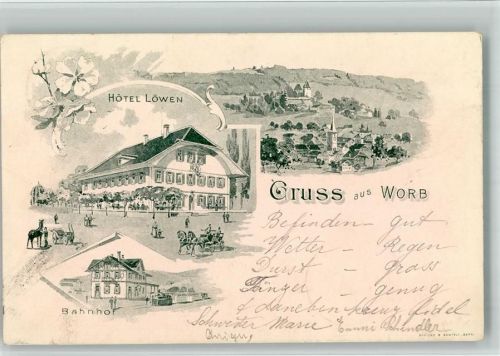 HÔTEL LÖWEN
Gruss aus WORB
Bahnhof
Befinden - gut
Wetter - Regen
Durst - gross
Hunger - genug
daneben kreuz fidel
Schwester Marie Emmi Schindler